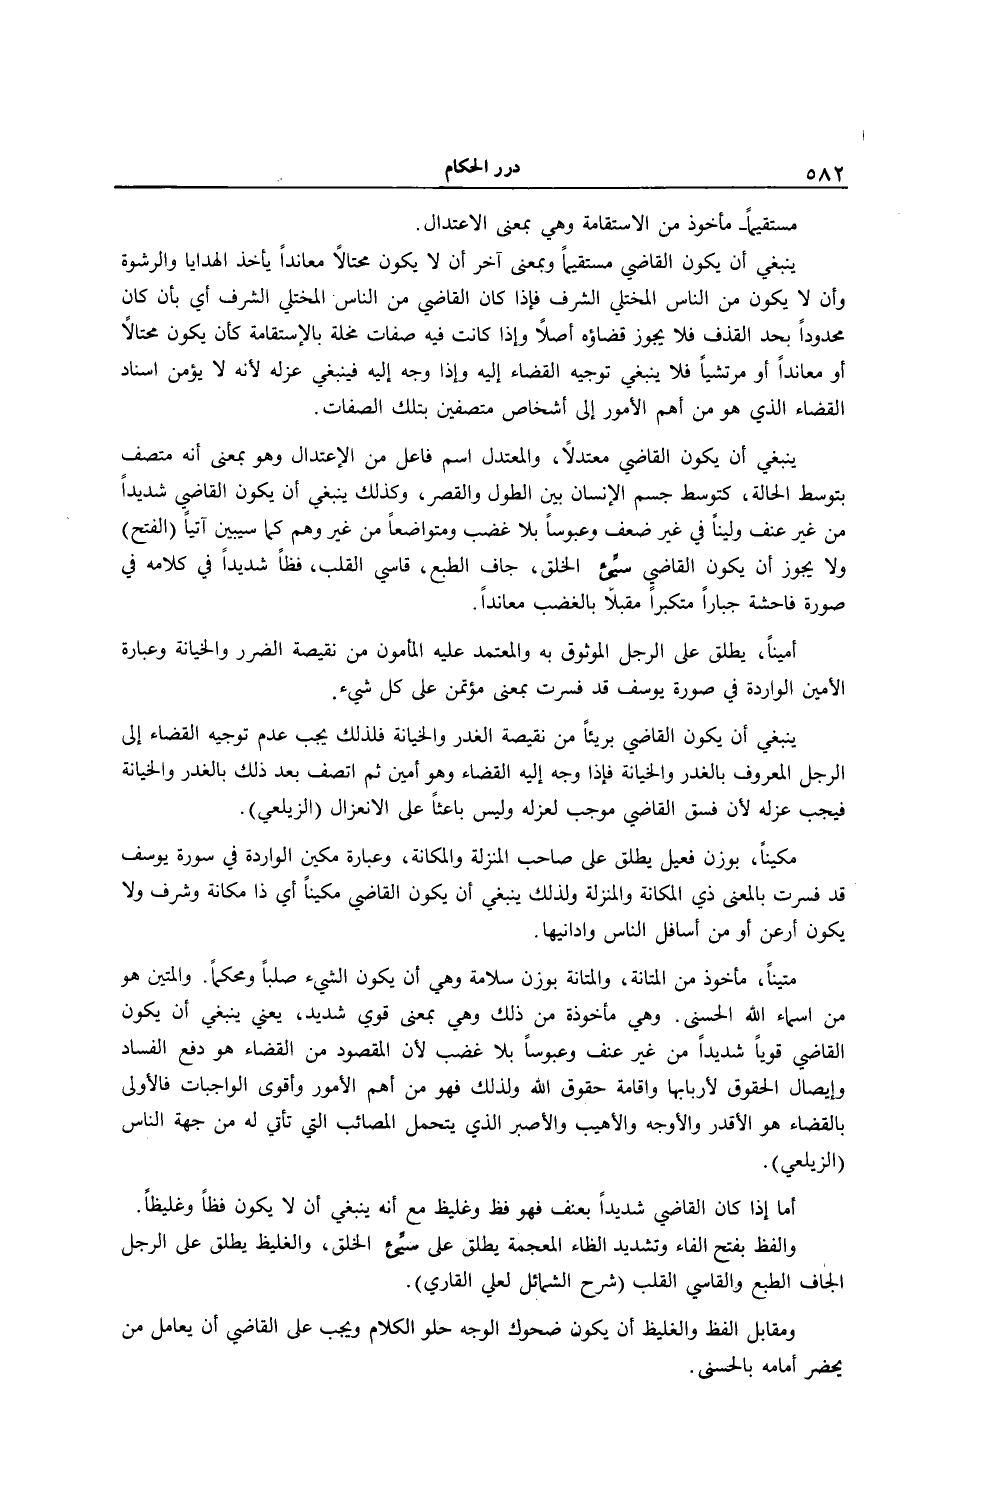 ٥٨٢
درر الحكام
مستقيماً- مأخوذ من الاستقامة وهي بمعنى الاعتدال.
ينبغي أن يكون القاضي مستقيماً وبمعنى آخر أن لا يكون محتالاً معانداً يأخذ الهدايا والرشوة
وأن لا يكون من الناس المختلي الشرف فإذا كان القاضي من الناس المختلي الشرف أي بأن كان
محدوداً بحد القذف فلا يجوز قضاؤه أصلاً وإذا كانت فيه صفات مخلة بالإستقامة كأن يكون محتالاً
أو معانداً أو مرتشياً فلا ينبغي توجيه القضاء إليه وإذا وجه إليه فينبغي عزله لأنه لا يؤمن اسناد
القضاء الذي هو من أهم الأمور إلى أشخاص متصفين بتلك الصفات.
ينبغي أن يكون القاضي معتدلاً، والمعتدل اسم فاعل من الإعتدال وهو بمعنى أنه متصف
بتوسط الحالة، كتوسط جسم الإنسان بين الطول والقصر، وكذلك ينبغي أن يكون القاضي شديداً
من غير عنف وليناً في غير ضعف وعبوساً بلا غضب ومتواضعاً من غير وهم كما سيبين آتياً (الفتح)
ولا يجوز أن يكون القاضي سيِّئ الخلق، جاف الطبع، قاسي القلب، فظاً شديداً في كلامه في
صورة فاحشة جباراً متكبراً مقبلًا بالغضب معانداً.
أميناً، يطلق على الرجل الموثوق به والمعتمد عليه المأمون من نقيصة الضرر والخيانة وعبارة
الأمين الواردة في صورة يوسف قد فسرت بمعنى مؤتمن على كل شيء.
ينبغي أن يكون القاضي بريئاً من نقيصة الغدر والخيانة فلذلك يجب عدم توجيه القضاء إلى
الرجل المعروف بالغدر والخيانة فإذا وجه إليه القضاء وهو أمين ثم اتصف بعد ذلك بالغدر والخيانة
فيجب عزله لأن فسق القاضي موجب لعزله وليس باعثاً على الانعزال (الزيلعي).
مكيناً، بوزن فعيل يطلق على صاحب المنزلة والمكانة، وعبارة مكين الواردة في سورة يوسف
قد فسرت بالمعنى ذي المكانة والمنزلة ولذلك ينبغي أن يكون القاضي مكيناً أي ذا مكانة وشرف ولا
يكون أرعن أو من أسافل الناس وادانيها.
متيناً، مأخوذ من المتانة، والمتانة بوزن سلامة وهي أن يكون الشيء صلباً ومحكماً. والمتين هو
من اسماء الله الحسنى. وهي مأخوذة من ذلك وهي بمعنى قوي شديد، يعني ينبغي أن يكون
القاضي قوياً شديداً من غير عنف وعبوساً بلا غضب لأن المقصود من القضاء هو دفع الفساد
وإيصال الحقوق لأربابها واقامة حقوق الله ولذلك فهو من أهم الأمور وأقوى الواجبات فالأولى
بالقضاء هو الأقدر والأوجه والأهيب والأصبر الذي يتحمل المصائب التي تأتي له من جهة الناس
(الزيلعي).
أما إذا كان القاضي شديداً بعنف فهو فظ وغليظ مع أنه ينبغي أن لا يكون فظاً وغليظاً.
والفظ بفتح الفاء وتشديد الظاء المعجمة يطلق على سيِّئ الخلق، والغليظ يطلق على الرجل
الجاف الطبع والقاسي القلب (شرح الشمائل لعلي القاري).
ومقابل الفظ والغليظ أن يكون ضحوك الوجه حلو الكلام ويجب على القاضي أن يعامل من
يحضر أمامه بالحسنى.